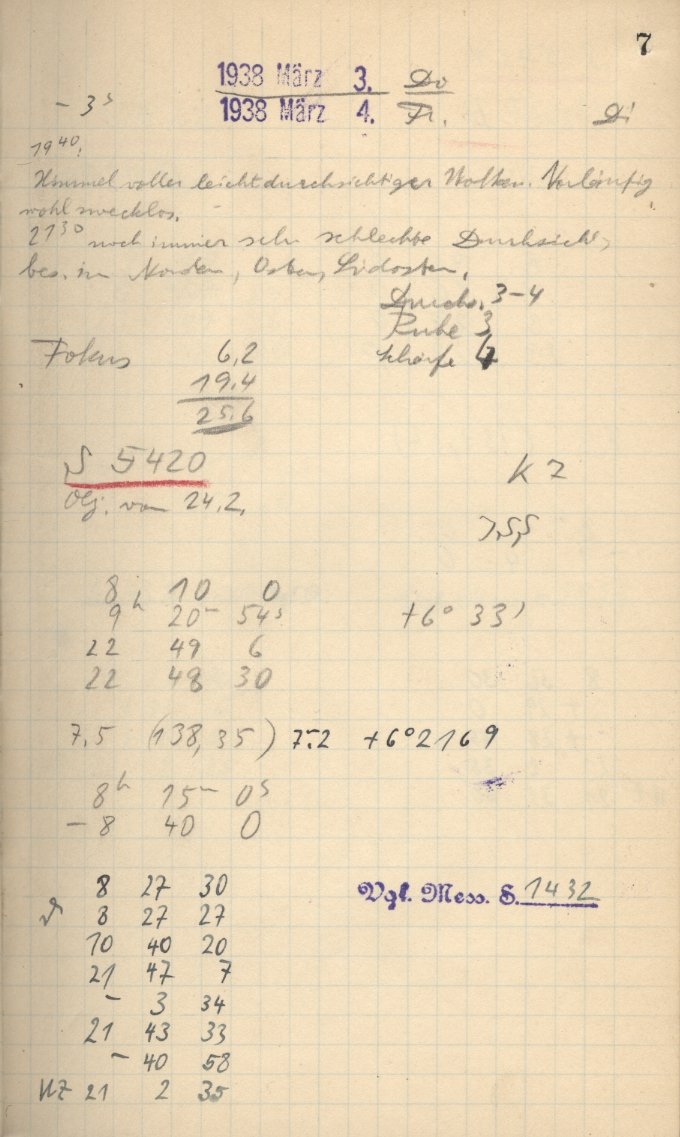 7
1938 März 3. Do
1938 März 4. Fr.
- 3 s
Di
19 40.
Himmel voller leicht durchsichtiger Wolken. Vorläufig
wohl zwecklos.
21 30 noch immer sehr schlechte Durchsicht,
bes. im Norden, Osten, Südosten.
Durchs. 3-4
Ruhe 3
Schärfe 4
Fokus 6,2
19.4
25.6
S 5420
K 7
Obj. vom 24.2.
8 10 0
9 h 20 m 54 s +6° 33'
22 49 6
22 48 30
7,5 (138,35) 75.2 +6°2169
8 h 15 m 0 s
- 8 40 0
8 27 30
Vgl. Mess. S. 1432
8 27 27
10 40 20
21 47 7
- 3 34
21 43 33
- 40 58
21 2 35